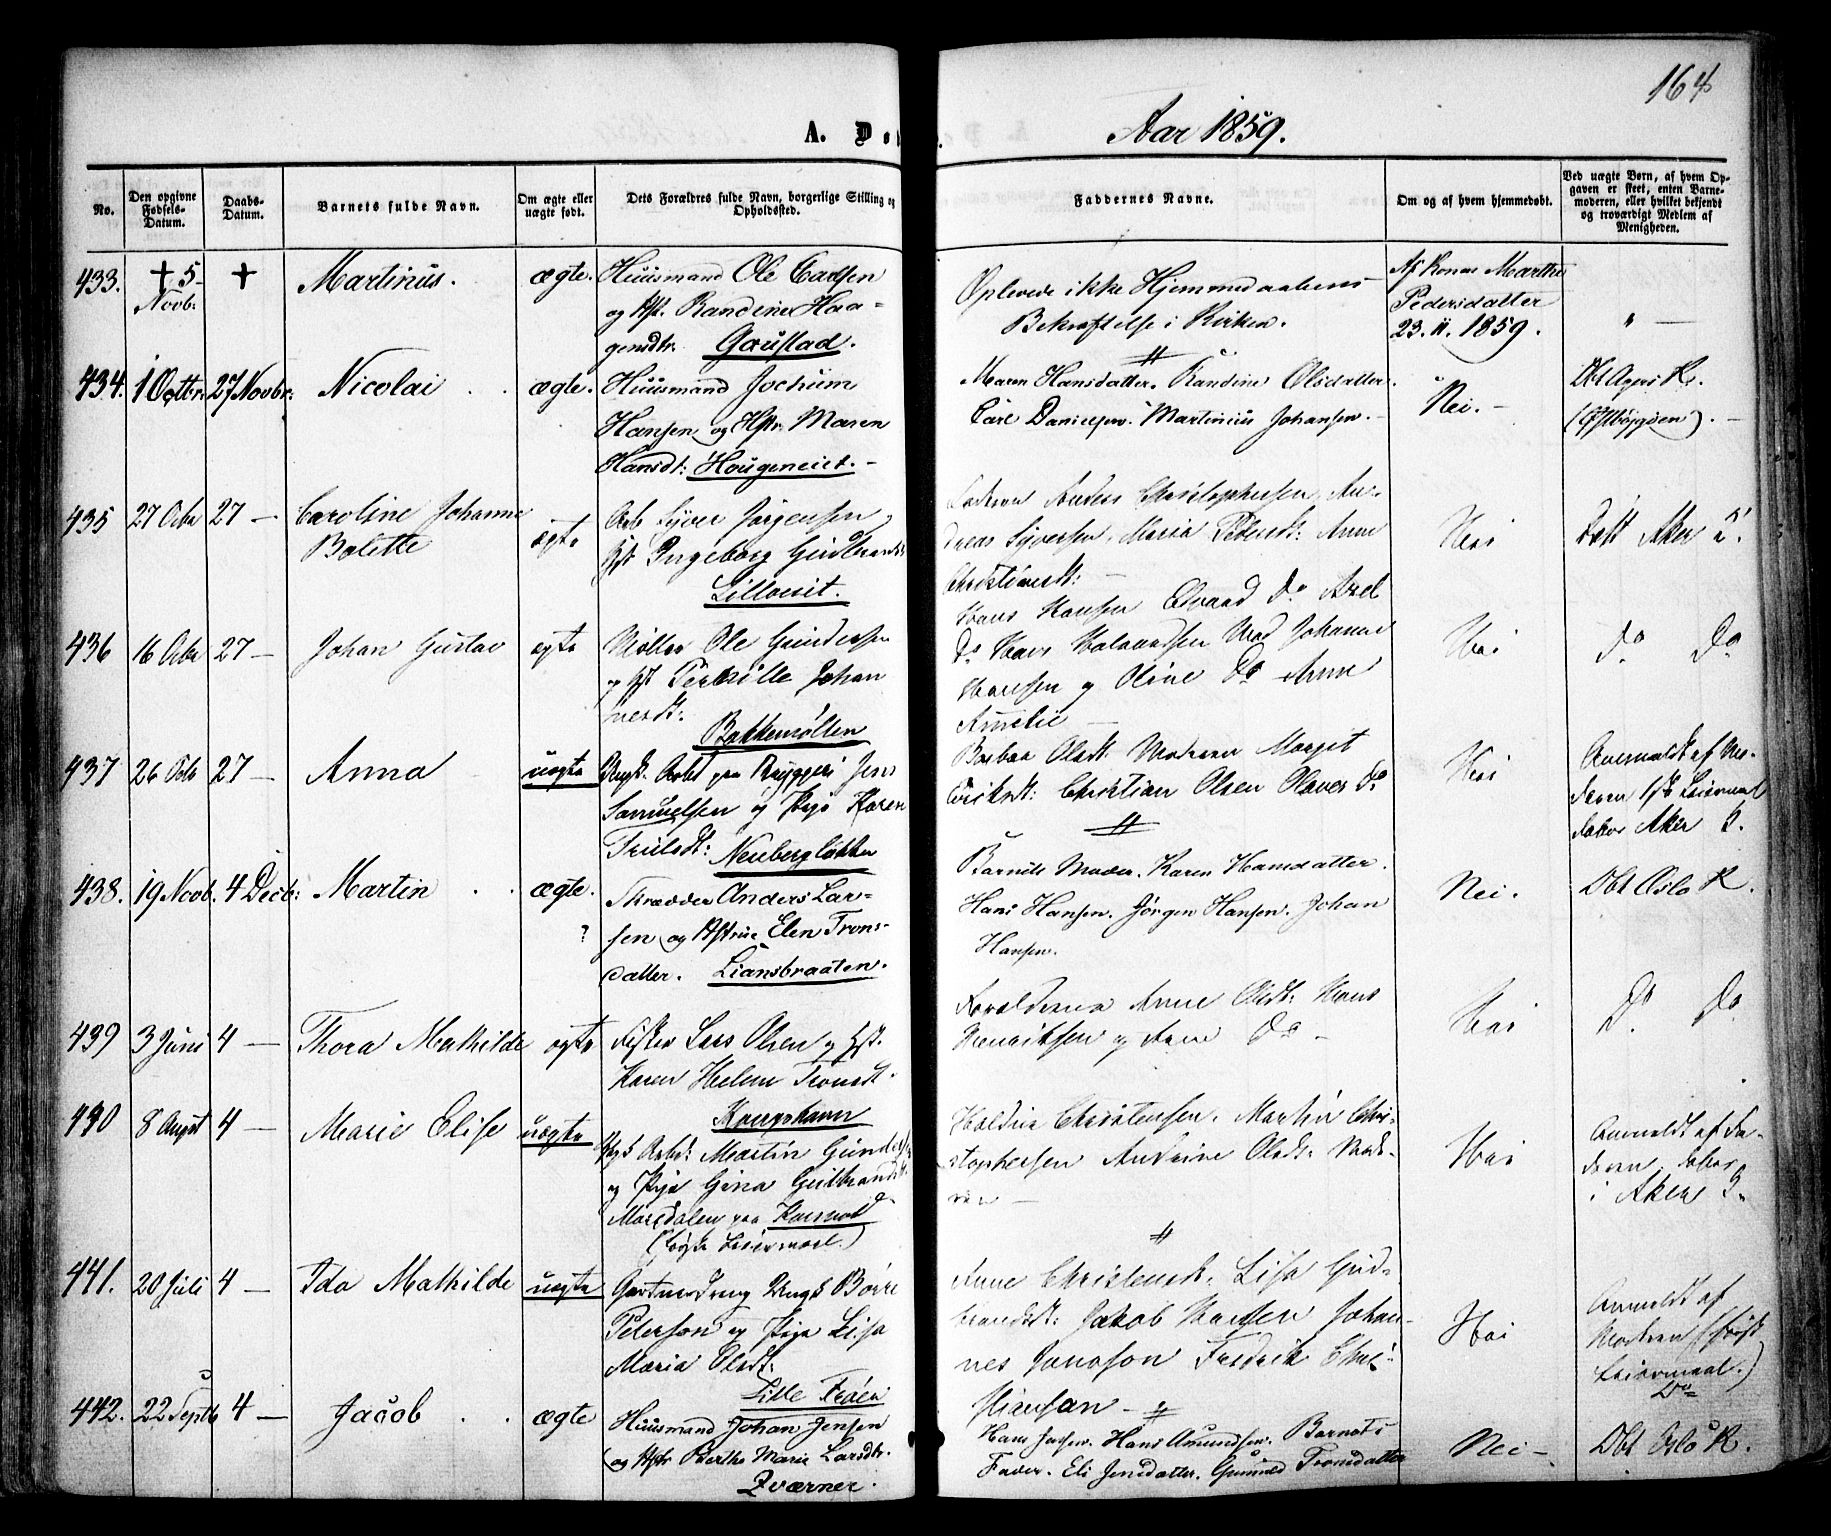 164
A. Dø
Aar 1859.
No.
Den opgivne Fødsels-Datum.
Daabs-Datum.
Barnets fulde Navn.
Om ægte eller uægte født.
Dets Forældres fulde Navn, borgerlige Stilling og Opholdssted.
Faddernes Navne.
Om og af hvem hjemmedøbt.
Ved uægte Børn, af hvem Opgaven er skeet, enten Barnemoderen, eller hvilket bekjendt og troværdigt Medlem af Menigheden.
433. + 5 Novb: + Martinus. ægte.
Huusmand Ole
og Hst. Randine Haa-
gensdtr. Gaustad.
Oplevede ikke Hjemmedaabens
Bekræftelse i Kirken.
Af Konas Marthe
Pedersdatter
23. 11. 1859.
" —
434. 1 Octbr. 27 Novbr: Nicolai ægte.
Huusmand Jochum
Hansen og Hstr. Maren
Hansdt: Hougeneiet. -
Maren Hansdatter. Randine Olsdatter
Carl Danielsen. Martinius Johansen. -
Nei. -
Dbt Agers K.
(Østbøygden). -
435 27 Octbr 27 — Caroline Johanne
Bolette
ægte
Arb Syver Jørgensen
Hst Ingeborg Gulbrands
Lilloeiet.
Faderen Anders Christophersen, An-
dreas Syversen, Maria Pedersdt: Anne
Christiansdt: —
Nei
Døbt Aker K.
436 16 Octbr 27 — Johan Gustav ægte
Møller Ole Gundersen
og Hst Pernille Johan
nesdt:
Bakkemøllen
Hans Hansen Edvard Do Axel
Do Hans Halvorsen Mad Johanne
Hansen og Oline Do Anne
Amelie —
Nei
do Do
437 26 Octb 27 — Anna uægte
Ungk. Arbd paa Bryggeri Jens
Samuelsen og Pige Karen
Trulsdt: Neubergløkken
Barbra Olsdt: Moderen Margit
Eriksdt: Christian Olsen Olaves Do
Nei
Anmeldt af Mo-
deren 1ste Leiermaal
døbt Aker K.
438. 19 Novb. 4 Decb: Martin ægte. ?
Skrædder Anders Lar-
sen og Hstrue Elen Trons-
datter. Liansbraaten.
Barnets Moder. Karen Hansdatter.
Hans Hansen. Jørgen Hansen. Johan
Hansen.
Nei.
Dbt Oslo K.
439 3 Juni 4 — Thora Mathilde ægte
Fisker Lars Olsen og Hst.
Karen Helene Tronsdt.
Kongshavn
Forældrene Anne Olsdt: Hans
Henriksen og Anne Do -
Nei
Do Do
440 8 August 4 — Marie Elise uægte
Ungk Arbd: Martin Gunders
og Pige Gina Gulbrandsdt
Maridalen paa Kasmod
(første Leiermaal.)
Christensen. Martin Chri-
stophersen Andrine Olsdt: Mode-
ren —
Nei
Anmeldt af Fa-
deren, døbt
i Aker K.
441. 20 Juli 4 — Ida Mathilde uægte
Gartnerdreng Ungk Børre
Peterson og Pige Lisa
Maria Olsdt:
Lille Frøen
Anne Christensdt: Lisa Gud-
brandsdt: Jakob Hansen Johan-
nes Jonasson Fredrik Chri-
stiansen -
Nei
Anmeldt af
Moderen (første
Leiermaal.)
Do
442. 22 Septb 4 — Jacob ægte
Huusmand Johan Jensen
og Hstr Berthe Marie Larsdtr.
Qværner.
Hans Jensen. Hans Amundsen. Barnets
Fader. Eli Jensdatter. Gunnild Tronsdatter
Nei -
Dbt Oslo K.